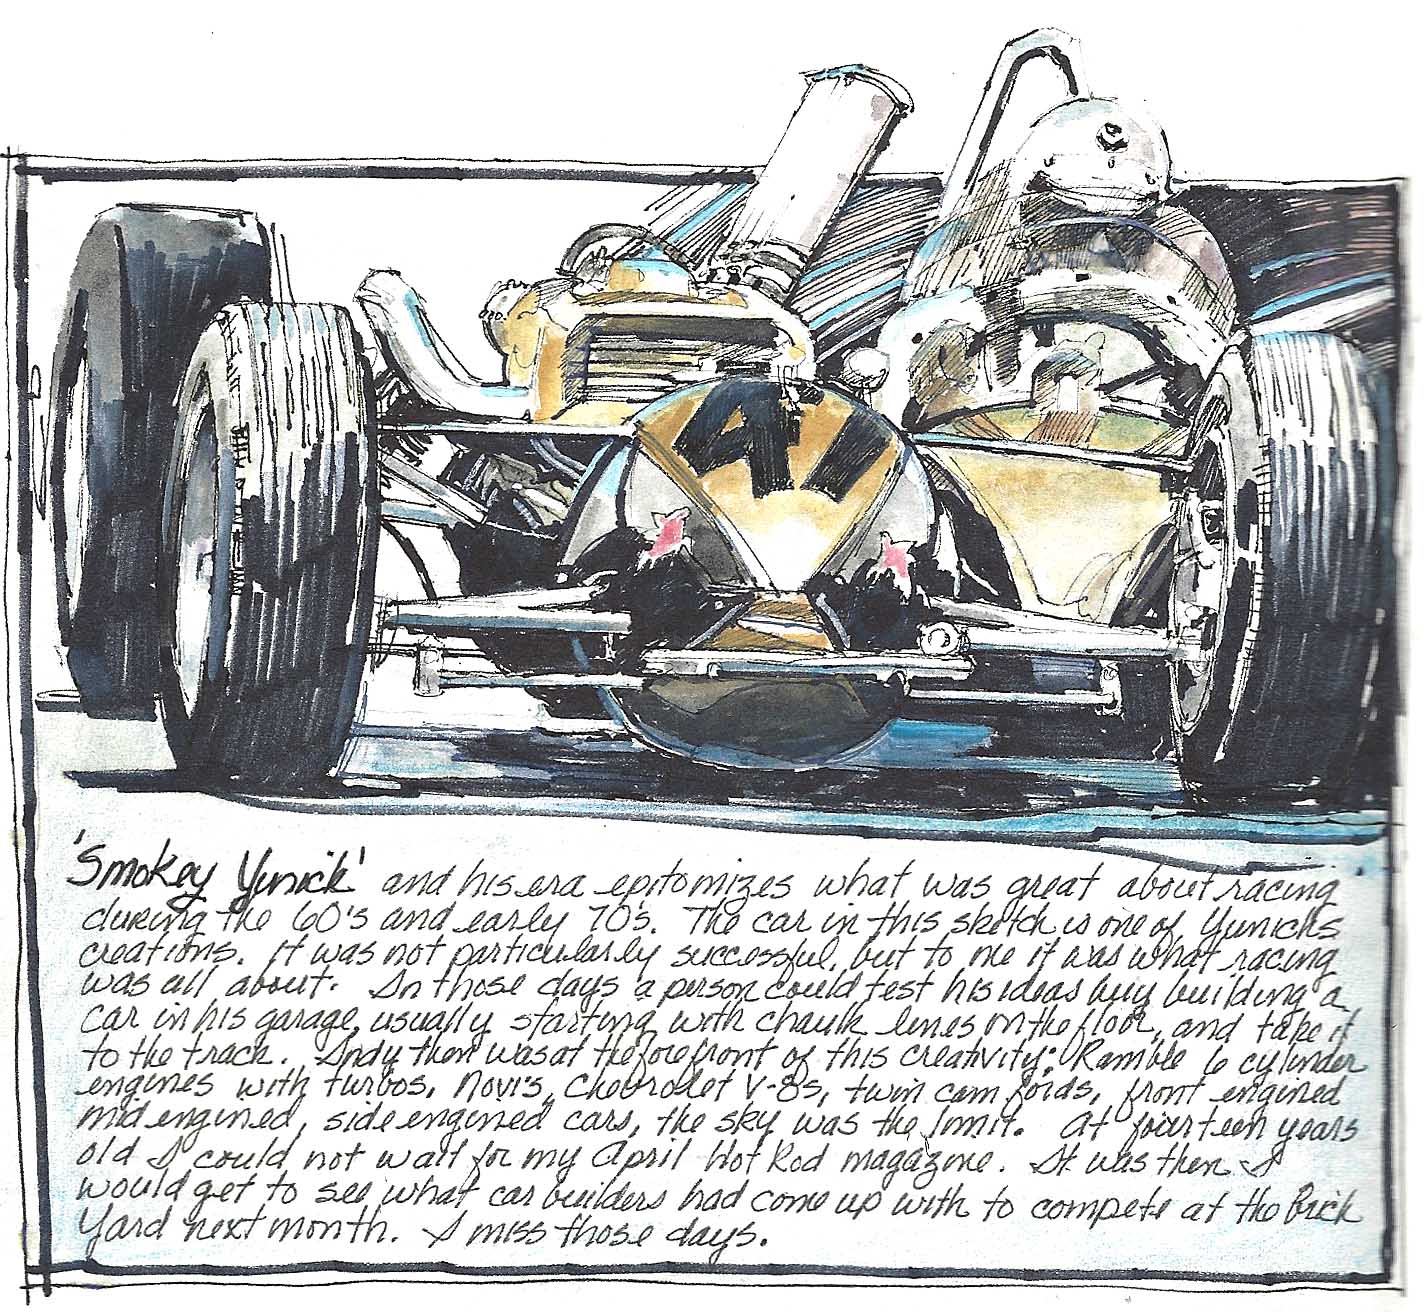 41
'Smokey Yunick' and his era epitomizes what was great about racing
during the 60's and early 70's. The car in this sketch is one of Yunichs
creations. it was not particularly successful, but to me it was what racing
was all about. In those days a person could test his ideas buy building a
car in his garage, usually starting with chaulk lines on the floor, and take it
to the track. Indy then was at the forefront of this creativity: Ramble 6 cylinder
engines with turbos, Novi's, Chevrolet V-8s, twin cam foids, front engined
mid engined, side engined cars, the sky was the limit. At fourteen years
old I could not wait for my April Hot Rod magazine. It was then I
would get to see what car builders had come up with to compete at the Brick
Yard next month. I miss those days.